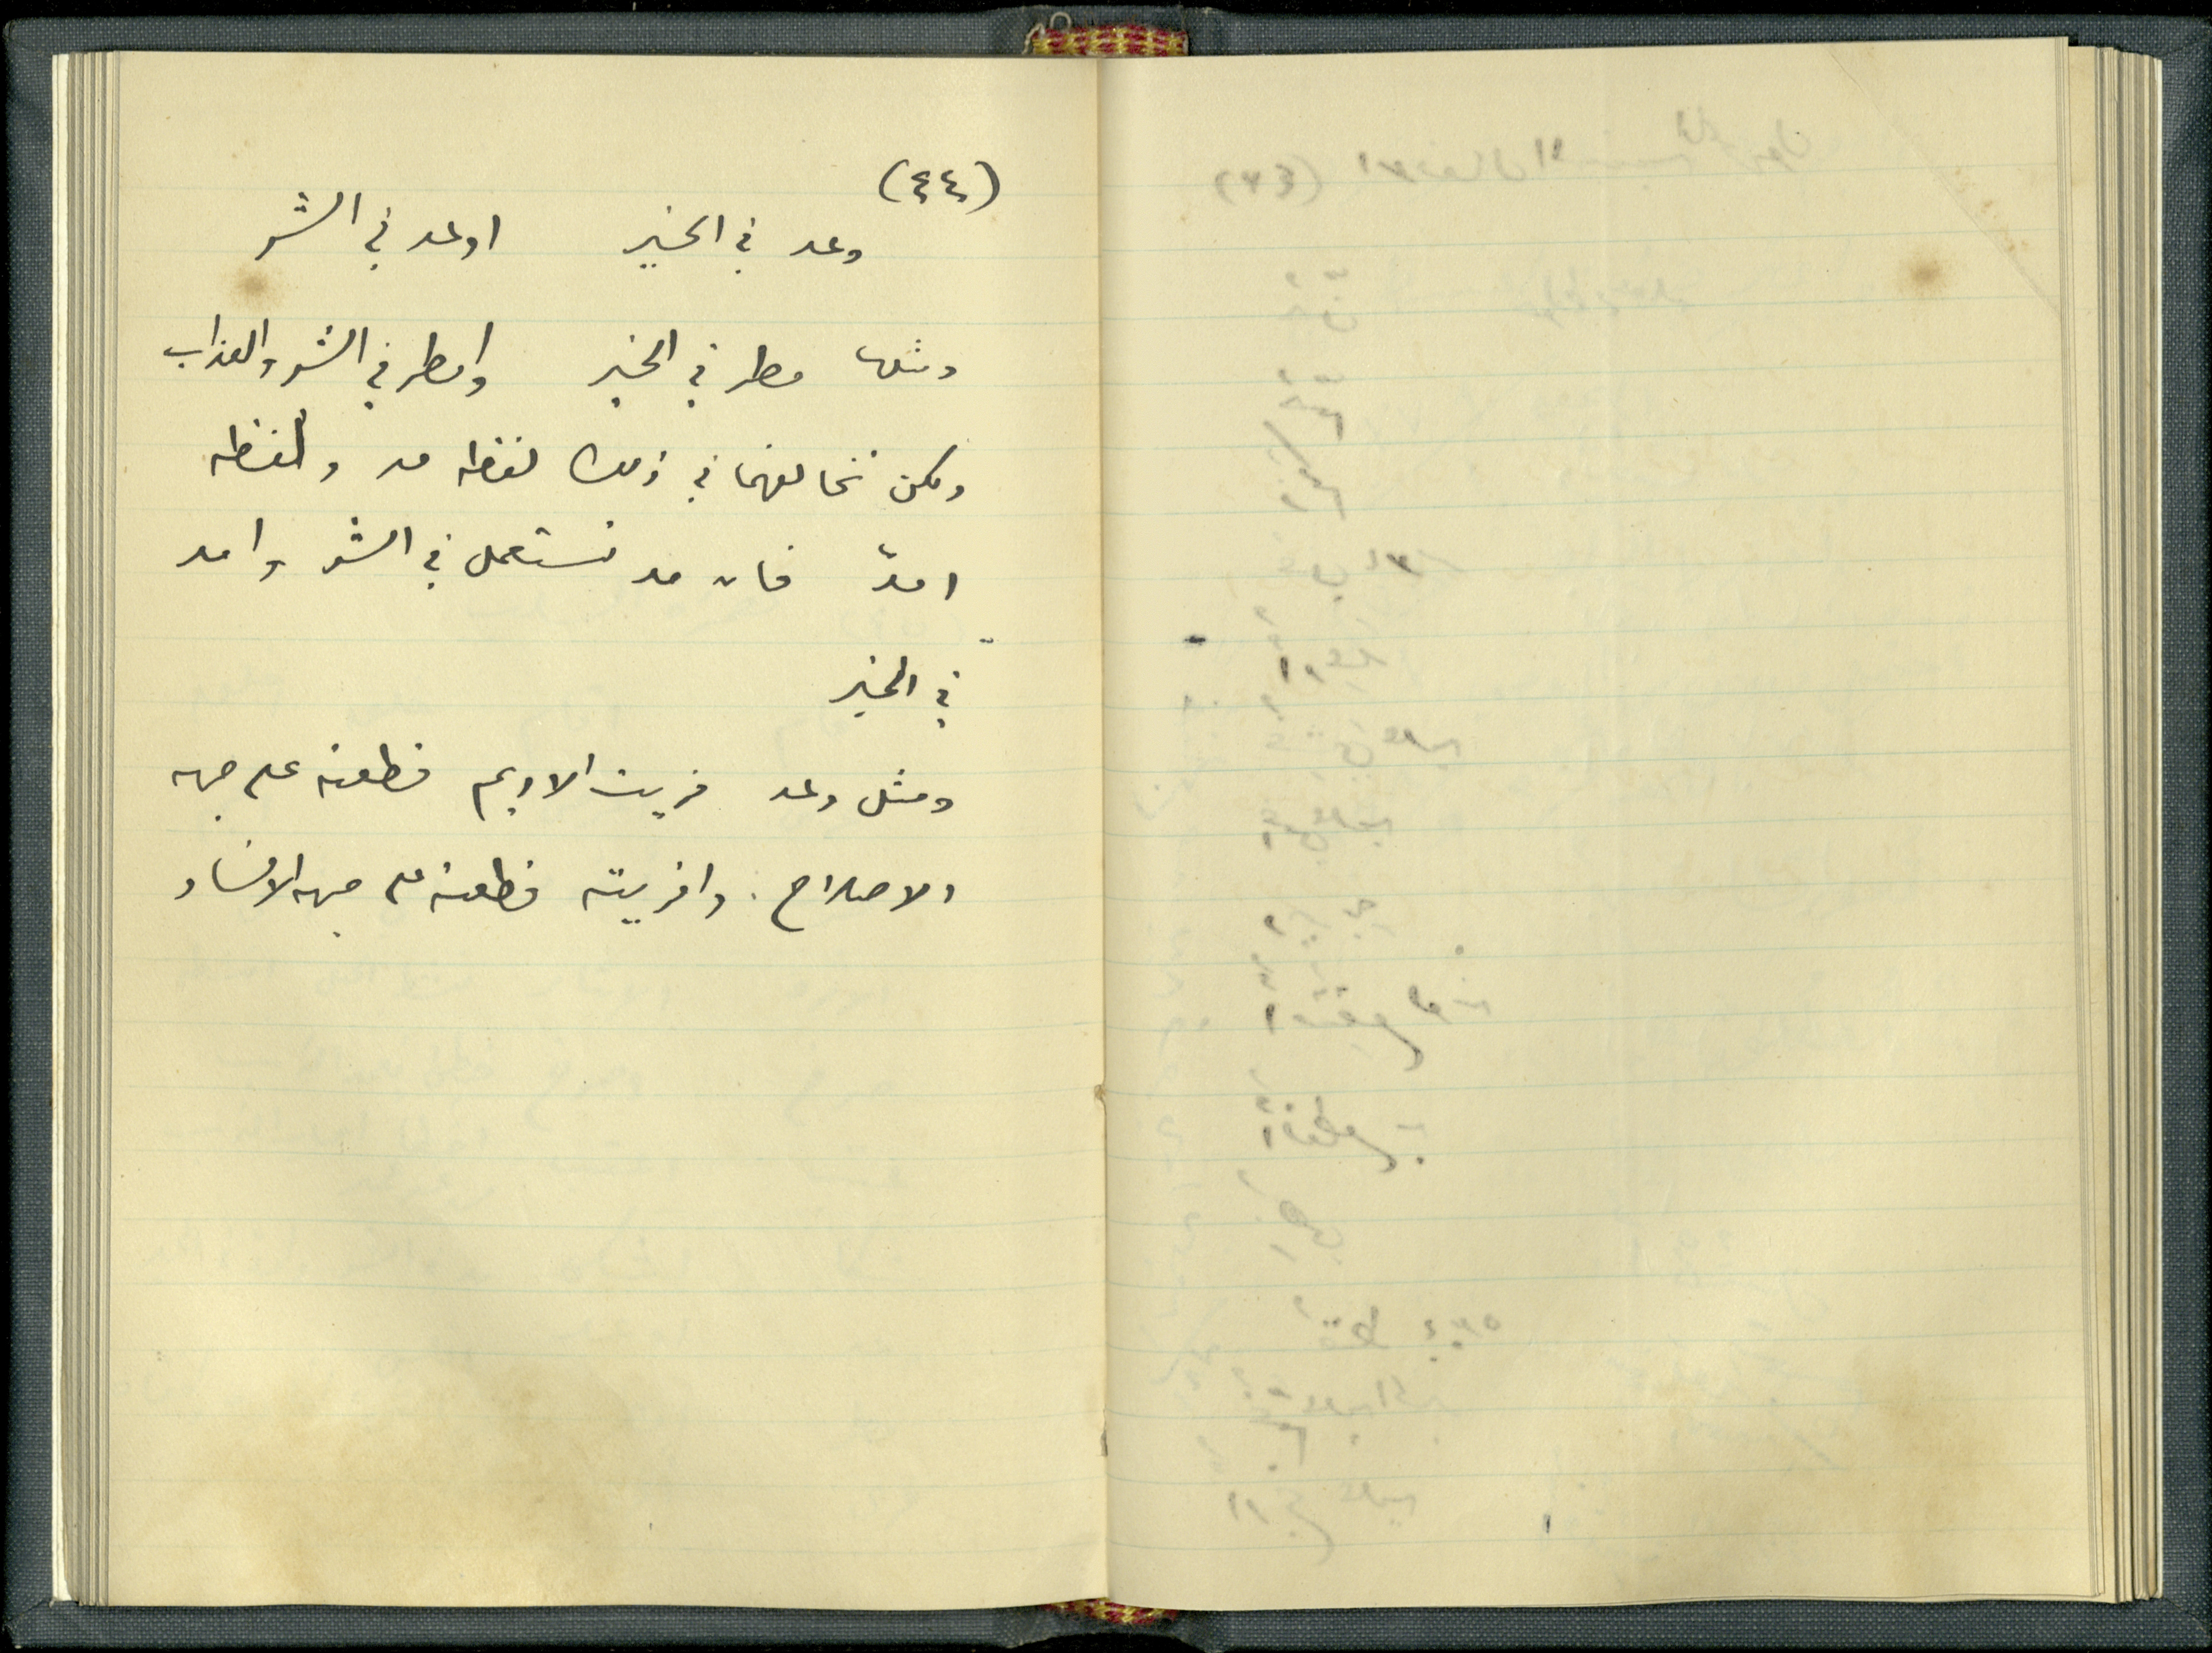 (٤٤)
وعد في الخير اوعد في الشر
ومثلها مطر في الخير وامطر في الشر والعذاب
ولكن تخالفهما في ذلك لفظه مد ولفظه
امدّ فان مد تستعمل في الشر وامد
في الخير
ومثل وعد فريت الاديم قطعته على جهه
الاصلاح . وافريته قطعته على جهه الافساد